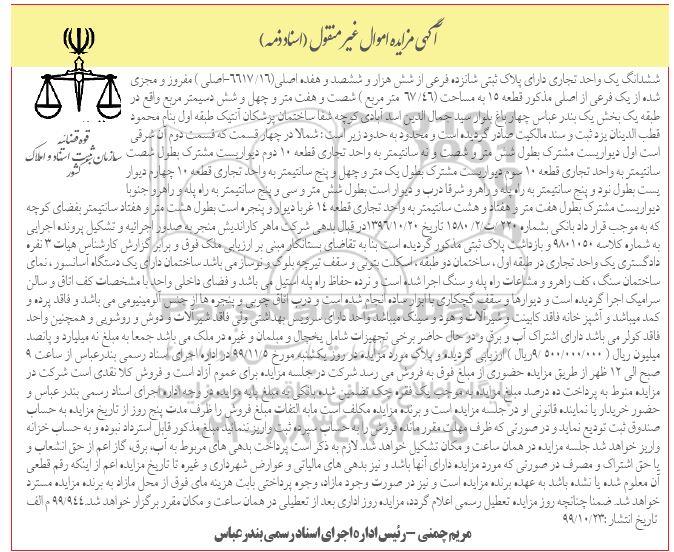 آگهی مزایده اموال غیر منقول (اسناد ذمه)
قوه قضائیه
سازمان ثبت اسناد و املاک
کشور
ششدانگ یک واحد تجاری دارای پلاک ثبتی شانزده فرعی از شش هزار و ششصد و هفده اصلی(۶۶۱۷/۱۶-اصلی ) مفروز و مجزی
شده از یک فرعی از اصلی مذکور قطعه ۱۵ به مساحت (۶۷/۴۶ متر مربع ) شصت و هفت متر و چهل و شش دسیمتر مربع واقع در
طبقه یک بخش یک بندر عباس چهار باغ بلوار سید جمال الدین اسد آبادی کوچه شفا ساختمان پزشکان آنتیک طبقه اول بنام محمود
قطب الدینان یزد ثبت و سند مالکیت صادر گردیده است و محدود به حدود زیر است : شمالا در چهار قسمت که قسمت دوم آن شرقی
است اول دیواریست مشترک بطول شش متر و شصت و نه سانتیمتر به واحد تجاری قطعه ۱۰ دوم دیواریست مشترک بطول شصت
سانتیمتر به واحد تجاری قطعه ۱۰ سوم دیواریست مشترک بطول یک متر و چهل و پنج سانتیمتر به واحد تجاری قطعه ۱۰ چهارم دیوار
یست بطول نود و پنج سانتیمتر به راه پله و راهرو شرقا درب و دیوار است بطول شش متر و سی و پنج سانتیمتر به راه پله و راهرو جنوبا
دیواریست مشترک بطول هفت متر و هفتاد و هشت سانتیمتر به واحد تجاری قطعه ۱۴ غربا دیوار و پنجره است بطول هشت متر و هفتاد سانتیمتر بفضای کوچه
که به موجب قرار داد بانکی بشماره ۲۲۰ /ت/۱۵۸۰/۲ تاریخ ۱۳۹۶/۱۰/۲۰در قبال بدهی شرکت ماهر کاراندیش منجر به صدور اجرائیه و تشکیل پرونده اجرایی
به شماره کلاسه ۹۸۰۱۰۵۰ و بازداشت پلاک ثبتی مذکور گردیده است بنا به تقاضای بستانکار مبنی بر ارزیابی ملک فوق و برابر گزارش کارشناس هیات ۳ نفره
دادگستری یک واحد تجاری در طبقه اول ، ساختمان دو طبقه ، اسکلت بتونی و سقف تیرچه بلوک و نوساز می باشد ساختمان دارای یک دستگاه آسانسور ، نمای
ساختمان سنگ ، کف راهرو و مشاعات راه پله و سنگ اجرا شده است و نرده حفاظ راه پله استیل می باشد و فضای داخلی واحد با مشخصات کف اتاق و سالن
سرامیک اجرا گردیده است و دیوارها و سقف گچکاری با ابزار ساده انجام شده است و درب اتاق چوبی و پنجره ها از جنس آلومینیومی می باشد و فاقد پرده و
کمد میباشد و آشپز خانه فاقد کابینت و شیرآلات و هود و سینک میباشد واحد دارای سرویس بهداشتی ولی فاقد شیرآلات و دوش و روشویی و همچنین واحد
فاقد کولر می باشد دارای اشتراک آب و برق و در حال حاضر برخی تجهیزات شامل یخچال و مبلمان و غیره در ملک می باشد جمعا به مبلغ نه میلیارد و پانصد
میلیون ریال ( ۹/۵۰۰/۰۰۰/۰۰۰ریال ) ارزیابی گردیده و پلاک مورد مزایده در روز یکشنبه مورخ ۹۹/۱۱/۵ در اداره اجرای اسناد رسمی بندرعباس از ساعت ۹
صبح الی ۱۲ ظهر از طریق مزایده حضوری از مبلغ فوق به فروش می رسد شرکت در جلسه مزایده برای عموم آزاد است و فروش کلا نقدی است شرکت در
مزایده منوط به پرداخت ده درصد مبلغ مزایده به موجب یک فقره چک تضمین شده بانکی به مبلغ پایه مزایده در وجه اداره اجرای اسناد رسمی بندر عباس و
حضور خریدار یا نماینده قانونی او در جلسه مزایده است و برنده مزایده مکلف است مابه التفات مبلغ فروش را ظرف مدت پنج روز از تاریخ مزایده به حساب
صندوق ثبت تودیع نماید و در صورتی که ظرف مهلت مقرر مانده فروش را به حساب سپرده ثبت واریز ننماید مبلغ مذکور قابل استرداد نبوده و به حساب خزانه
واریز خواهد شد جلسه مزایده در همان ساعت و مکان تشکیل خواهد شد. لازم به ذکر است پرداخت بدهی های مربوط به آب، برق، گاز اعم از حق انشعاب و
یا حق اشتراک و مصرف در صورتی که مورد مزایده دارای آنها باشد و نیز بدهی های مالیاتی و عوارض شهرداری و غیره تا تاریخ مزایده اعم از اینکه رقم قطعی
آن معلوم شده یا نشده باشد به عهده برنده مزایده است و نیز در صورت وجود مازاد، وجوه پرداختی بابت هزینه مای فوق از محل مازاد به برنده مزایده مسترد
خواهد شد. ضمنا چنانچه روز مزایده تعطیل رسمی اعلام گردد، مزایده روز اداری بعد از تعطیلی در همان ساعت و مکان مقرر برگزار خواهد شد. ۹۹/۹۴۴ م الف
تاریخ انتشار : ۹۹/۱۰/۲۳
مریم چمنی – رئیس اداره اجرای اسناد رسمی بندر عباس